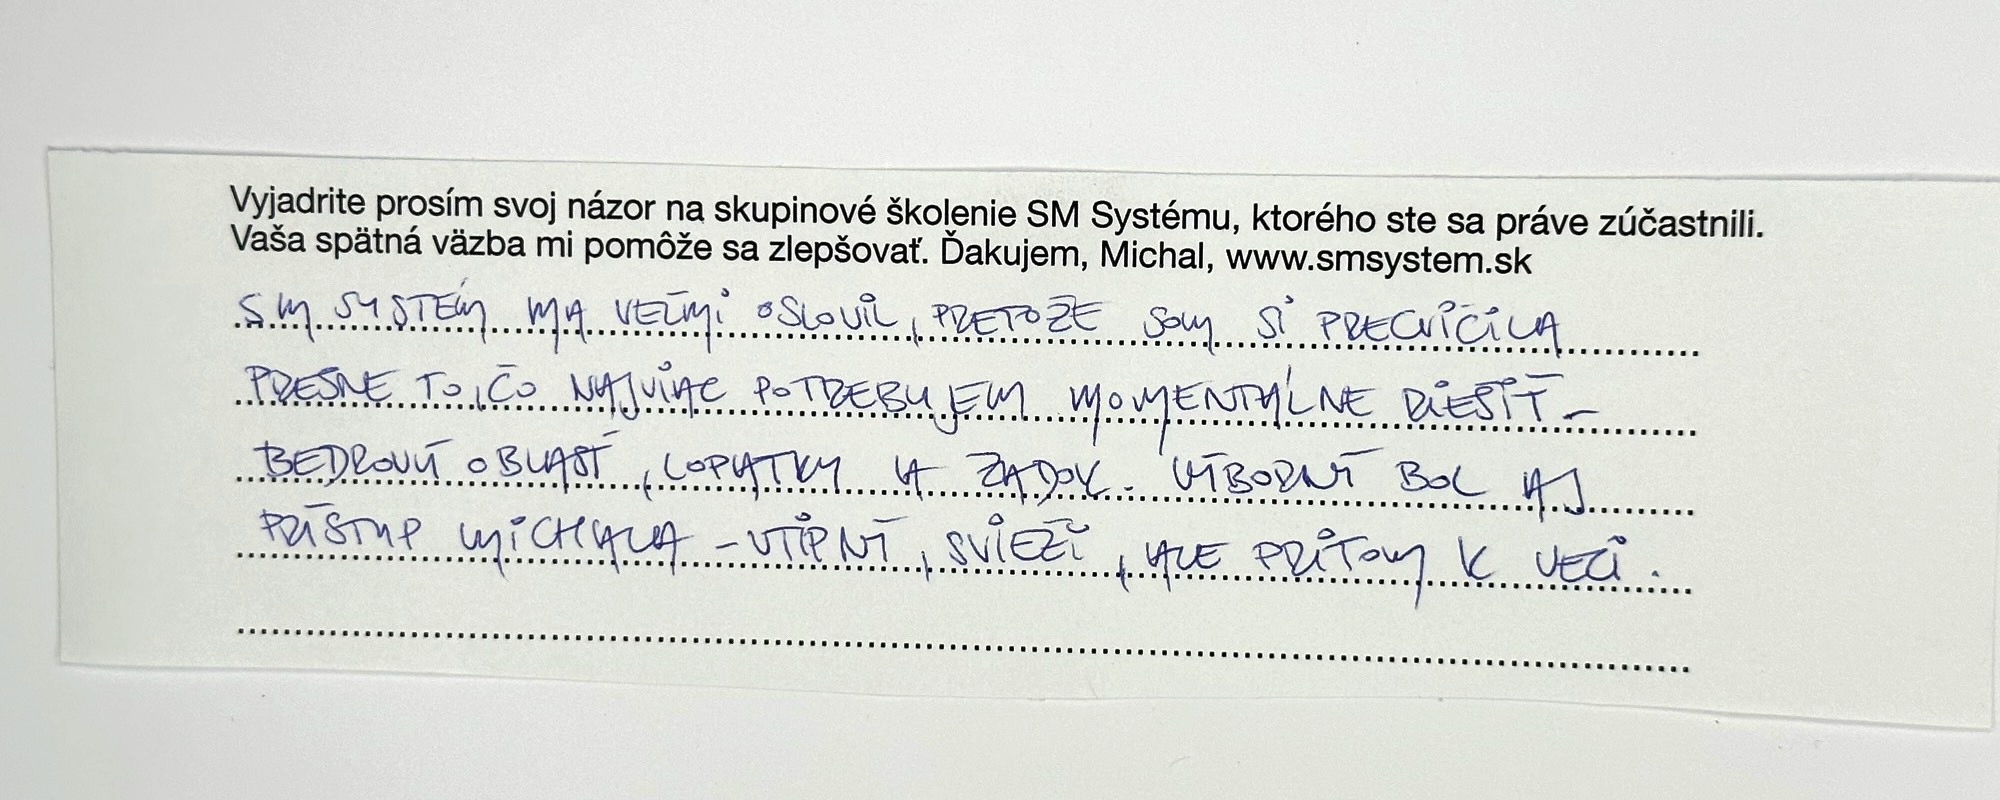 Vyjadrite prosím svoj názor na skupinové školenie SM Systému, ktorého ste sa práve zúčastnili.
Vaša spätná väzba mi pomôže sa zlepšovať. Ďakujem, Michal, www.smsystem.sk
SM SYSTÉM MA VEĽMI OSLOVIL, PRETOŽE SOM SI PRECVIČILA
PRESNE TO, ČO NAJVIAC POTREBUJEM MOMENTÁLNE RIEŠIŤ –
BEDROVÚ OBLASŤ, LOPATKY A ZADOK. VÝBORNÝ BOL AJ
PRÍSTUP MICHALA – VTIPNÝ, SVIEŽI, ALE PRITOM K VECI.